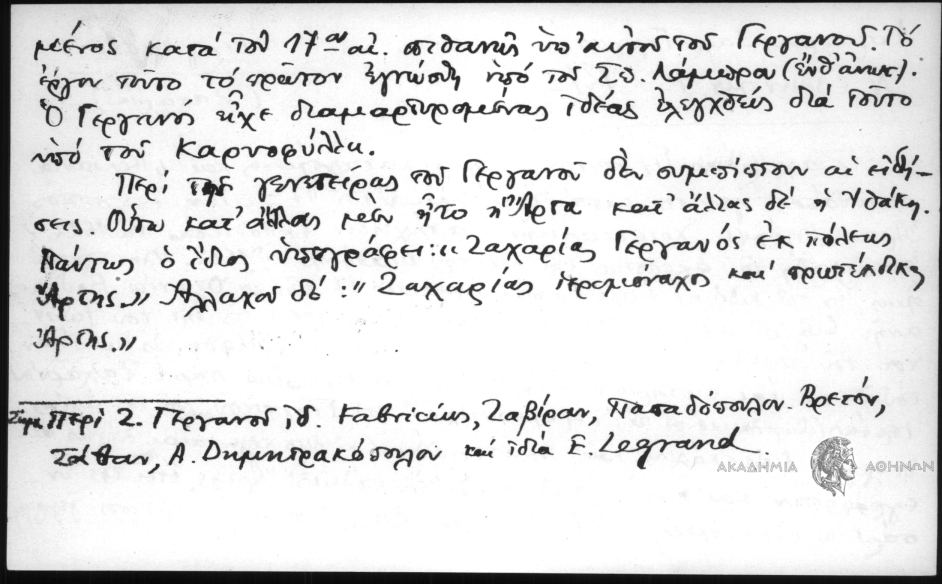 μμένος κατά τόν 17ον αἰ. πιθανῶς ὑπ' αὐτοῦ τοῦ Γεργανοῦ. Τό
ἔργον τοῦτο τό πρῶτον ἐγνώσθη ὑπό τοῦ Σπ. Λάμπρου (ἔνθ' ἀνωτ.).
Ὁ Γεργανός εἶχε διαμαρτυρομένας ἰδέας ἐλεγχθείς διά τοῦτο
ὑπό τοῦ Καρυοφύλλη.
Περί τῆς γενετείρας τοῦ Γεργανοῦ δέν συμπίπτουν αἱ εἰδή-
σεις. Οὕτω κατ' ἄλλας μέν ἦτο ἡ Ἄρτα κατ' ἄλλας δέ ἡ Ἰθάκη.
Πάντως ὁ ἴδιος ὑπογράφει: «Ζαχαρίας Γεργανός ἐκ πόλεως
Ἄρτης.» Ἀλλαχοῦ δέ: «Ζαχαρίας ἱερομόναχος καί πρωτέκδικος
Ἄρτης.»
Σημ. Περί Ζ. Γεργανοῦ, ἰδ. Fabricius, Ζαβίραν, Παπαδόπουλον-Βρετόν,
Σάθαν, Α. Δημητρακόπουλον καί ἰδίᾳ E. Legrand.
ΑΚΑΔΗΜΙΑ ΑΘΗΝΩΝ